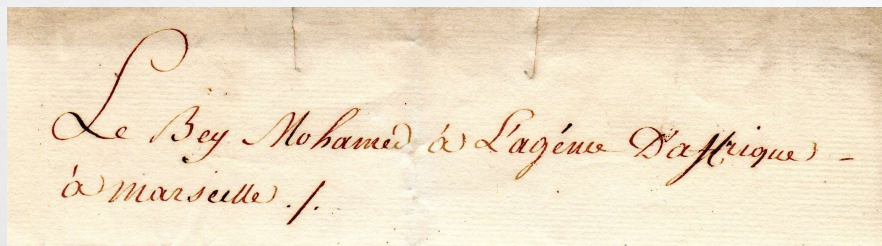 Le Bey Mohamed à L'agénce D'affrique -
à marseille ./.